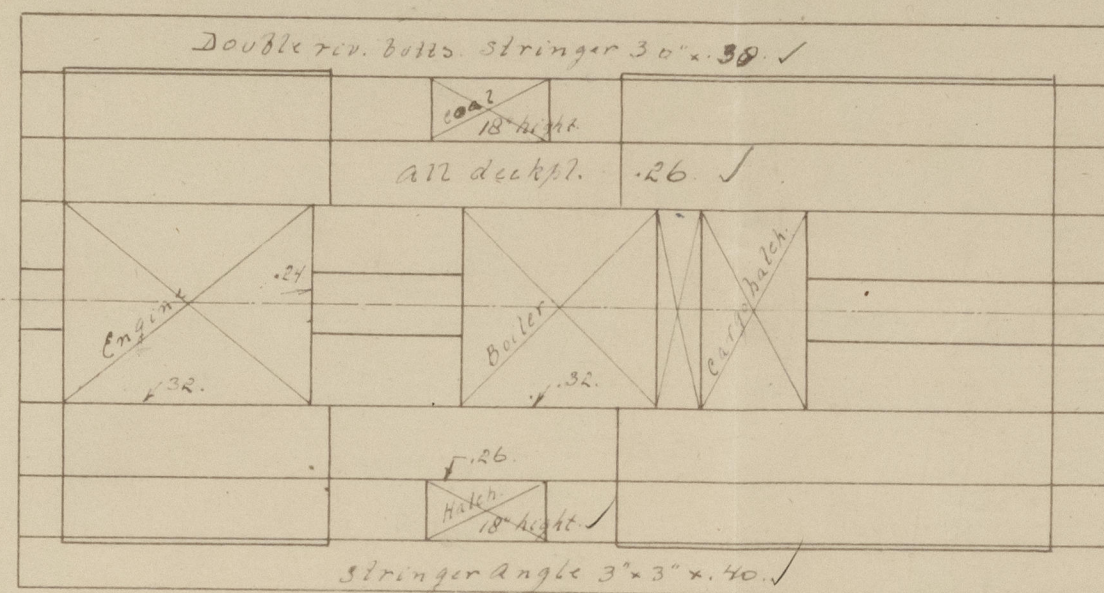 Double riv. butts. stringer 30" x .38. ✓
coal
18" hight.
all deckpl. .26 ✓
.24
Engine
Boiler
cargo hatch.
.32.
.32.
.26.
Hatch.
18" hight. ✓
stringer angle 3" x 3" x .40. ✓